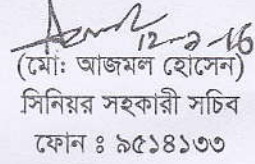 12-৯-16
(মো: আজমল হোসেন)
সিনিয়র সহকারী সচিব
ফোন ঃ ৯৫১৪১৩৩